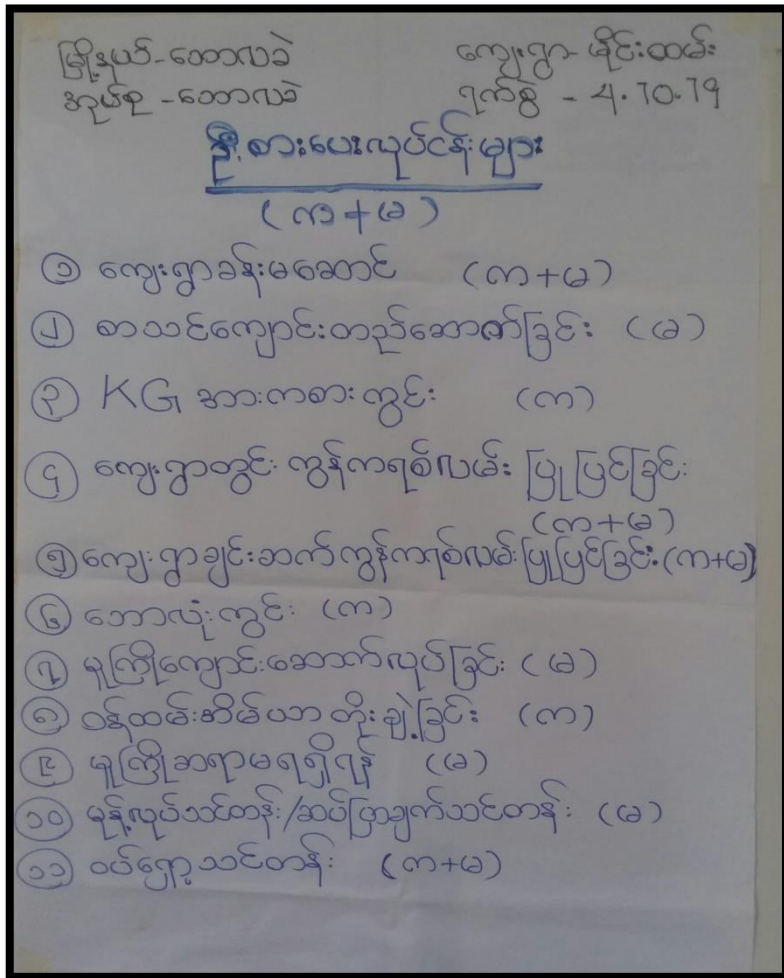 မြို့နယ်-ဘောလခဲ ကျေးရွာ-မိုင်းထမ်း
အုပ်စု -ဘောလခဲ ရက်စွဲ - 4.10.19
ဦးစားပေးလုပ်ငန်းများ
(ကာ+မ)
၁ ကျေးရွာခန်းမဆောင် (ကာ+မ)
၂ စာသင်ကျောင်းတည်ဆောက်ခြင်း (မ)
၃ KG အားကစားကွင်း (ကာ)
၄ ကျေးရွာတွင်း ကွန်ကရစ်လမ်း ပြုပြင်ခြင်း
(ကာ+မ)
၅ ကျေးရွာချင်းဆက်ကွန်ကရစ်လမ်းပြုပြင်ခြင်း(ကာ+မ)
၆ ဘောလုံးကွင်း (ကာ)
၇ မူကြိုကျောင်းဆောက်လုပ်ခြင်း (မ)
၈ ဝန်ထမ်းအိမ်ယာ တိုးချဲ့ခြင်း (ကာ)
၉ မူကြိုဆရာမရရှိရန် (မ)
၁၀ မုန့်လုပ်သင်တန်း/ဆပ်ပြာချက်သင်တန်း (မ)
၁၁ ဝပ်ရှော့သင်တန်း (ကာ+မ)